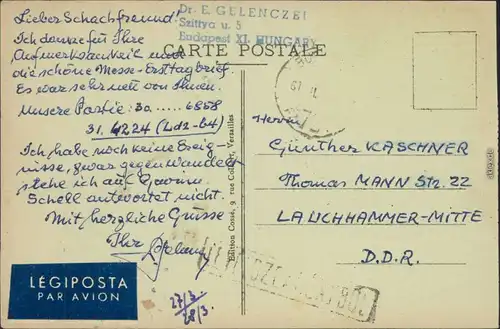 Dr. E. GELENCZEI
Szittya u. 5
Budapest XI. HUNGARY
CARTE POSTALE
Lieber Schachfreund!
Ich danke für Ihre
Aufmerksamkeit und
die schöne Messe-Ersttagbrief.
Es war sehr nett von Ihnen.
Unsere Partie: 30 ..... 6858
31. 4224 (Ld2-b4)
Ich habe noch keine Ereig-
nisse, zwar gegen Wandelt
stehe ich auf Gewinn.
Scholl antwortet nicht.
Mit herzliche Grüsse
Ihr
Edition Cossé, 9 rue Colbert, Versailles
Herrn
Günther KASCHNER
Thomas MANN Str. 22
LAUCHHAMMER-MITTE
D.D.R.
LÉGIPOSTA
PAR AVION
27/3.
28/3.